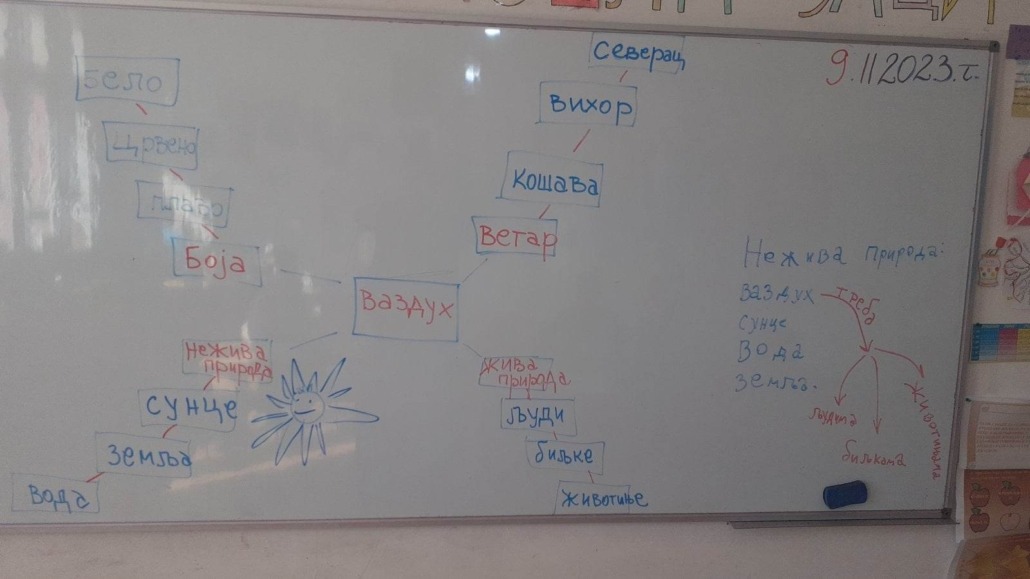 9. 11 2023. г.
бело
Црвено
плаво
Боја
Северац
Вихор
Кошава
Ветар
Ваздух
Нежива
природа
Сунце
Земља
Вода
Жива
природа
људи
биљке
животиње
Нежива природа:
ваздух треба
сунце
вода
земља.
људима
биљкама
животињама